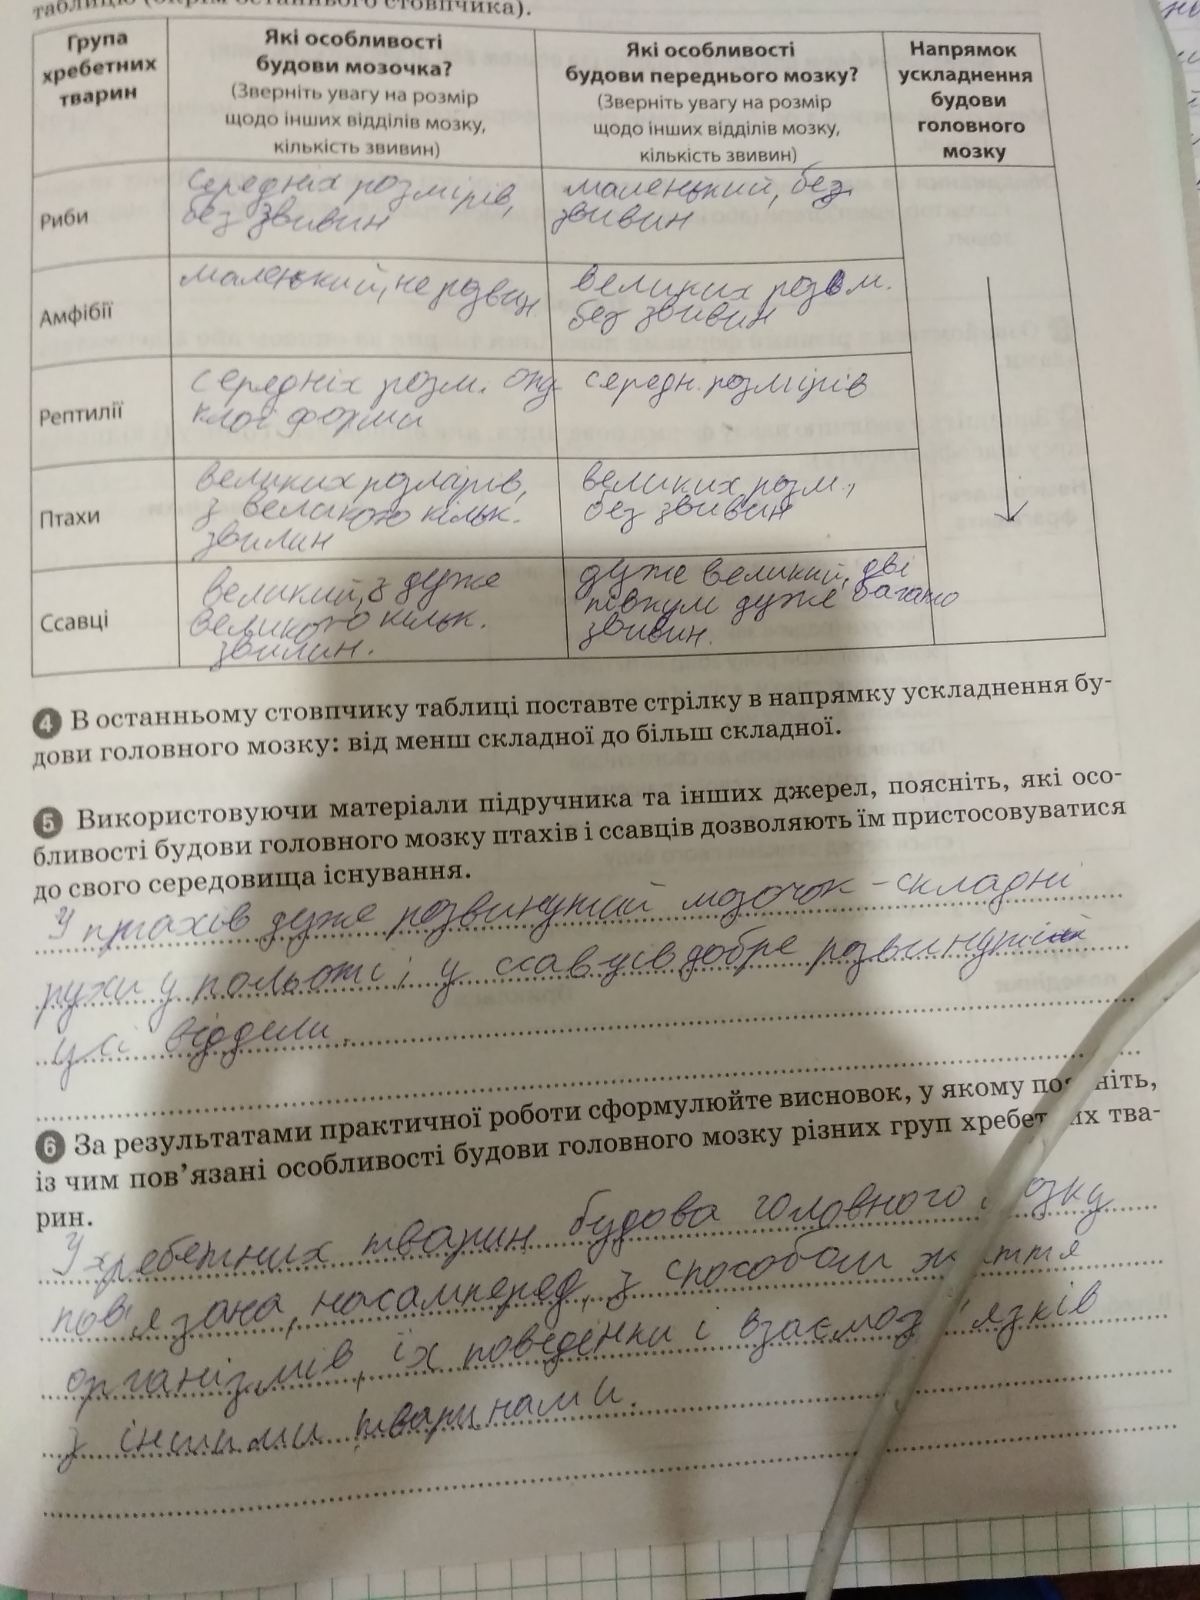 таблицю (окрім останнього стовпчика).
Група
хребетних
тварин
Які особливості
будови мозочка?
(Зверніть увагу на розмір
щодо інших відділів мозку,
кількість звивин)
Які особливості
будови переднього мозку?
(Зверніть увагу на розмір
щодо інших відділів мозку,
кількість звивин)
Напрямок
ускладнення
будови
головного
мозку
Риби
середніх розмірів,
без звивин
маленький, без
звивин
Амфібії
маленький, не розвин
великих розм.
без звивин
Рептилії
середніх розм. окр
клої форми
середн. розмірів
Птахи
великих розмірів,
з великого кільк.
звилин
великих розм.,
без звивин
Ссавці
великий, з дуже
великого кільк.
звилин.
дуже великий, дві
півкул дуже багато
звивин.
4 В останньому стовпчику таблиці поставте стрілку в напрямку ускладнення бу-
дови головного мозку: від менш складної до більш складної.
5 Використовуючи матеріали підручника та інших джерел, поясніть, які осо-
бливості будови головного мозку птахів і ссавців дозволяють їм пристосовуватися
до свого середовища існування.
У птахів дуже розвинутий мозочок – складні
рухи у польоті; у ссавців добре розвинуті
усі відділи.
6 За результатами практичної роботи сформулюйте висновок, у якому поясніть,
із чим пов’язані особливості будови головного мозку різних груп хребетних тва-
рин.
У хребетних тварин будова головного мозку
пов'язана, насамперед, з способом життя
організмів, їх поведінки і взаємозв'язків
з іншими тваринами.